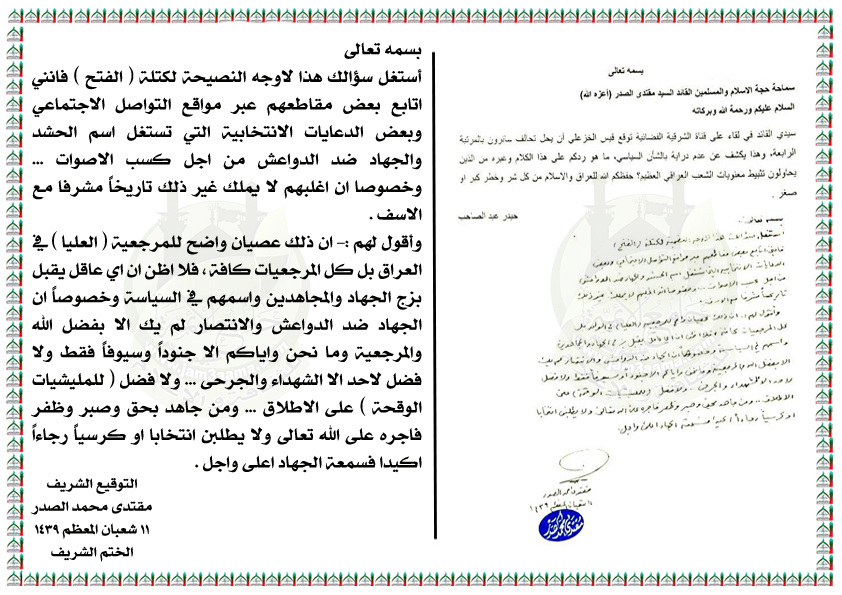 بسمه تعالى
سماحة حجة الاسلام والمسلمين القائد السيد مقتدى الصدر (أعزه الله)
السلام عليكم ورحمة الله وبركاته
سيدي القائد في لقاء على قناة الشرقية الفضائية توقع قيس الخزعلي أن يحل تحالف سائرون بالمرتبة
الرابعة، وهذا يكشف عن عدم دراية بالشأن السياسي، ما هو ردكم على هذا الكلام وغيره من الذين
يحاولون تثبيط معنويات الشعب العراقي العظيم؟ حفظكم الله للعراق والاسلام من كل شر وخطر كبر او
صغر .
حيدر عبد الصاحب
بسمه تعالى
أستغل سؤالك هذا لاوجه النصيحة لكتلة (الفتح)
مقتدى محمد الصدر
١١ شعبان المعظم ١٤٣٩
بسمه تعالى
أستغل سؤالك هذا لاوجه النصيحة لكتلة ( الفتح ) فانني
اتابع بعض مقاطعهم عبر مواقع التواصل الاجتماعي
وبعض الدعايات الانتخابية التي تستغل اسم الحشد
والجهاد ضد الدواعش من اجل كسب الاصوات ...
وخصوصا ان اغلبهم لا يملك غير ذلك تاريخاً مشرفا مع
الاسف .
وأقول لهم :- ان ذلك عصيان واضح للمرجعية ( العليا ) في
العراق بل كل المرجعيات كافة ، فلا اظن ان اي عاقل يقبل
بزج الجهاد والمجاهدين واسمهم في السياسة وخصوصاً ان
الجهاد ضد الدواعش والانتصار لم يك الا بفضل الله
والمرجعية وما نحن واياكم الا جنوداً وسيوفاً فقط ولا
فضل لاحد الا الشهداء والجرحى ... ولا فضل ( للمليشيات
الوقحة ) على الاطلاق ... ومن جاهد بحق وصبر وظفر
فاجره على الله تعالى ولا يطلبن انتخابا او كرسياً رجاءاً
اكيدا فسمعة الجهاد اعلى واجل .
التوقيع الشريف
مقتدى محمد الصدر
١١ شعبان المعظم ١٤٣٩
الختم الشريف